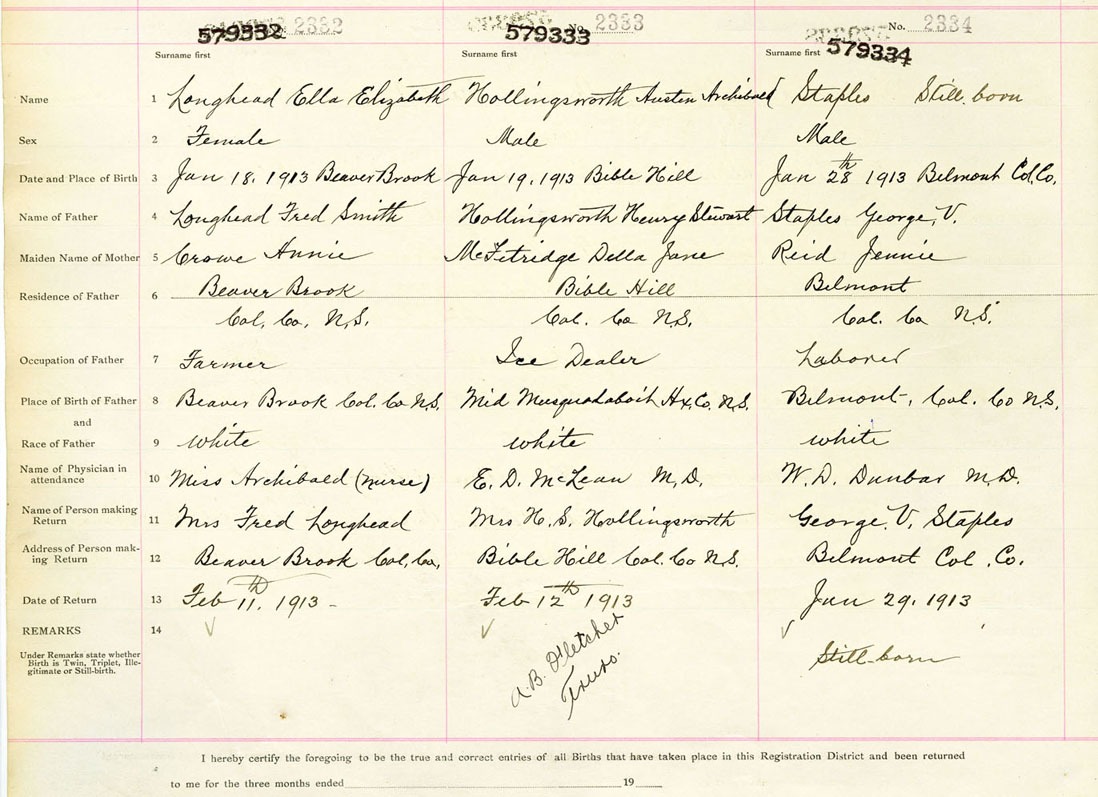 579332 No. 2332 579333 No. 2333 579334 No. 2334
Surname first Surname first Surname first
Name 1 Longhead Ella Elizabeth Hollingsworth Austen Archibald Staples Still born
Sex 2 Female Male Male
Date and Place of Birth 3 Jan 18, 1913 Beaver Brook Jan 19, 1913 Bible Hill Jan 28th 1913 Belmont Col. Co.
Name of Father 4 Longhead Fred Smith Hollingsworth Henry Stewart Staples George, V.
Maiden Name of Mother 5 Crowe Annie McFetridge Della Jane Reid Jennie
Residence of Father 6 Beaver Brook Bible Hill Belmont
Col. Co. N.S. Col. Co N.S. Col. Co N.S.
Occupation of Father 7 Farmer Ice Dealer Laborer
Place of Birth of Father 8 Beaver Brook Col. Co N.S. Mid Musquodoboit Hx. Co. N.S. Belmont, Col. Co N.S.
and
Race of Father 9 white white white
Name of Physician in
attendance 10 Miss Archibald (nurse) E. D. McLean M.D. W. D. Dunbar M.D.
Name of Person making
Return 11 Mrs Fred Longhead Mrs H. S. Hollingsworth George V. Staples
Address of Person mak-
ing Return 12 Beaver Brook Col. Co. Bible Hill Col. Co N.S. Belmont Col. Co.
Date of Return 13 Feb 11th, 1913 - Feb 12th 1913 Jan 29, 1913
REMARKS 14 ✓ ✓ ✓
Under Remarks state whether
Birth is Twin, Triplet, Ille-
gitimate or Still-birth.
A. B. Fletcher
Truro.
Still-born
I hereby certify the foregoing to be the true and correct entries of all Births that have taken place in this Registration District and been returned
to me for the three months ended 19